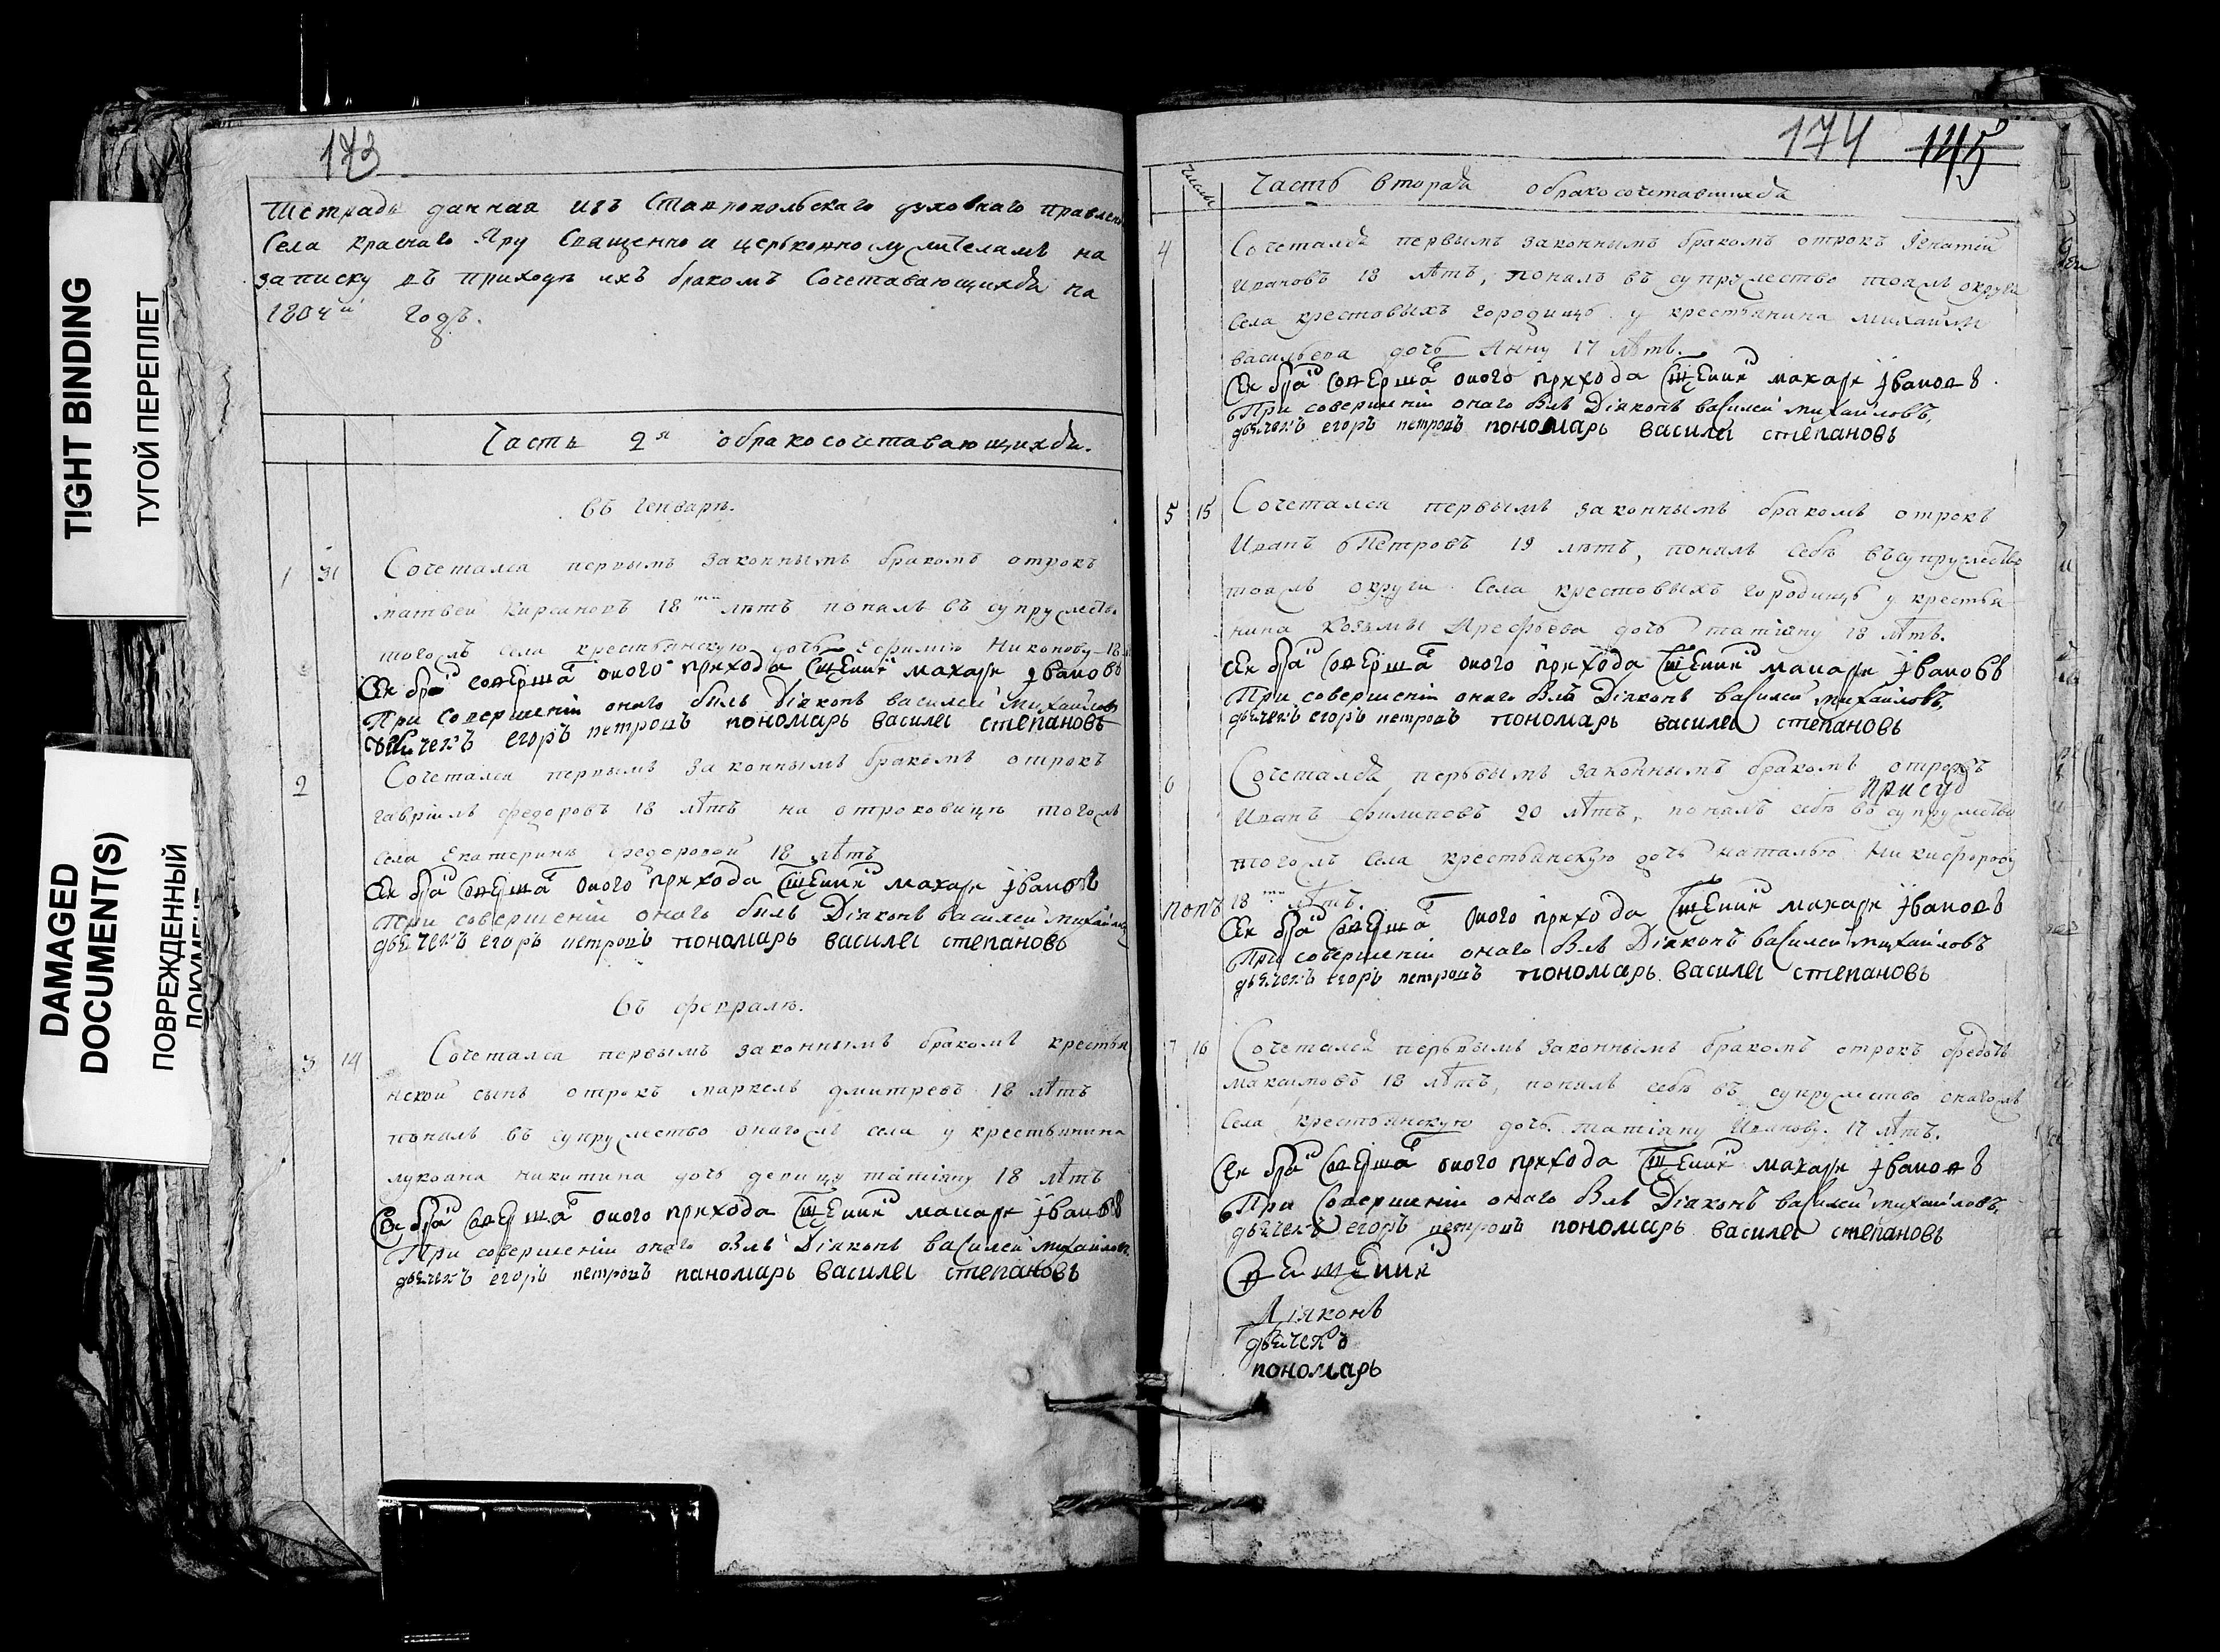 TIGHT BINDING
ТУГОЙ ПЕРЕПЛЕТ
DAMAGED
DOCUMENT(S)
ПОВРЕЖДЕННЫЙ
ДОКУМЕНТ
173
Тетрадь данная изъ Ставропольскаго духовнаго правлен
Села краснаго Яру Священно и церьковно служителамъ на
записку въ приходѣ ихъ бракомъ Сочетавающихся на
1804й годъ.
Часть 2я обракосочетавающихся.
въ Генварѣ.
1 31 Сочетался первымъ законнымъ бракомъ отрокъ
матвей Кирсановъ 18ти лѣтъ понялъ въ супружество
тогожъ села крестьянскую дочь Ефимію Никонову 18
Сей бра совѣрша оного прихода Сщенни макари Iвановъ
При совершеніи онаго былъ Діяконъ василей Михайловъ
дьячекъ егоръ петровъ пономарь василеи степановъ
2 Сочетался первымъ законнымъ бракомъ отрокъ
гавріилъ федоровъ 18 лѣтъ на отроковицѣ тогожъ
села Екатеринѣ федоровой 18 лѣтъ
Сей бра совѣрша оного прихода Сщенни макари Iвановъ
При совершеніи онаго былъ Діяконъ василей михайловъ
дьячекъ егоръ петровъ пономарь василеи степановъ
въ февралѣ.
3 14 Сочетался первымъ законнымъ бракомъ крестья
нской сынъ отрокъ маркелъ дмитревъ 18 лѣтъ
понялъ въ супружество онагожъ села у крестьянина
лукояна никитина дочь девицу татіяну 18 лѣтъ
Сей бра совѣрша оного прихода Сщенни макари Iвановъ
При совершеніи онаго былъ Діяконъ василей михайловъ
дьячекъ егоръ петровъ паномарь василеи степановъ
174 145
числы Часть вторая обракосочетавшихся
4 Сочетался первымъ законнымъ бракомъ отрокъ Iгнатій
Ивановъ 18 лѣтъ, понялъ въ супружество тояжъ округи
села крестовыхъ городищь у крестьянина михайлы
васильева дочь Анну 17 лѣтъ.
Сей бра совѣрша оного прихода Сщенни макари Iвановъ.
При совершеніи онаго былъ Діяконъ василей михайловъ,
дьячекъ егоръ петровъ пономарь василеи степановъ
5 15 Сочетался первымъ законнымъ бракомъ отрокъ
Иванъ Петровъ 19 лѣтъ, понялъ себѣ въсупружество
тояжъ округи села крестовыхъ городищь у крестья
нина козьмы Арефьева дочь татіяну 18 лѣтъ.
Сей бра совѣрша оного прихода Сщенни макари Iвановъ
При совершеніи онаго былъ Діяконъ василей михайловъ,
дьячекъ егоръ петровъ пономарь василеи степановъ
6 Сочетался первымъ законнымъ бракомъ отрокъ
Иванъ филиповъ 20 лѣтъ, понялъ себѣ въ супружество
тогожъ села крестьянскую дочь наталью Никифорову
18ти лѣтъ.
Сей бра совѣрша оного прихода Сщенни макари Iвановъ
При совершеніи онаго былъ Діяконъ василей михайловъ
дьячекъ егоръ петровъ пономарь василеи степановъ
7 16 Сочетался первымъ законнымъ бракомъ отрокъ федотъ
максимовъ 18 лѣтъ, понялъ себѣ въ супружество онагожъ
села крестьянскую дочь татіяну Иванову. 17 лѣтъ.
Сей бра совѣрша оного прихода Сщенни макари Iвановъ
При совершеніи онаго былъ Діяконъ василей михайловъ,
дьячекъ егоръ петровъ пономарь василеи степановъ
Діяконъ
дьячекъ
пономарь